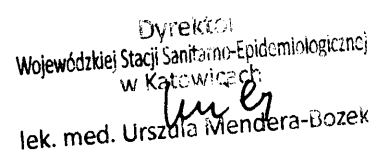 Dyrektor
Wojewódzkiej Stacji Sanitarno-Epidemiologicznej
w Katowicach
lek. med. Urszula Mendera-Bozek